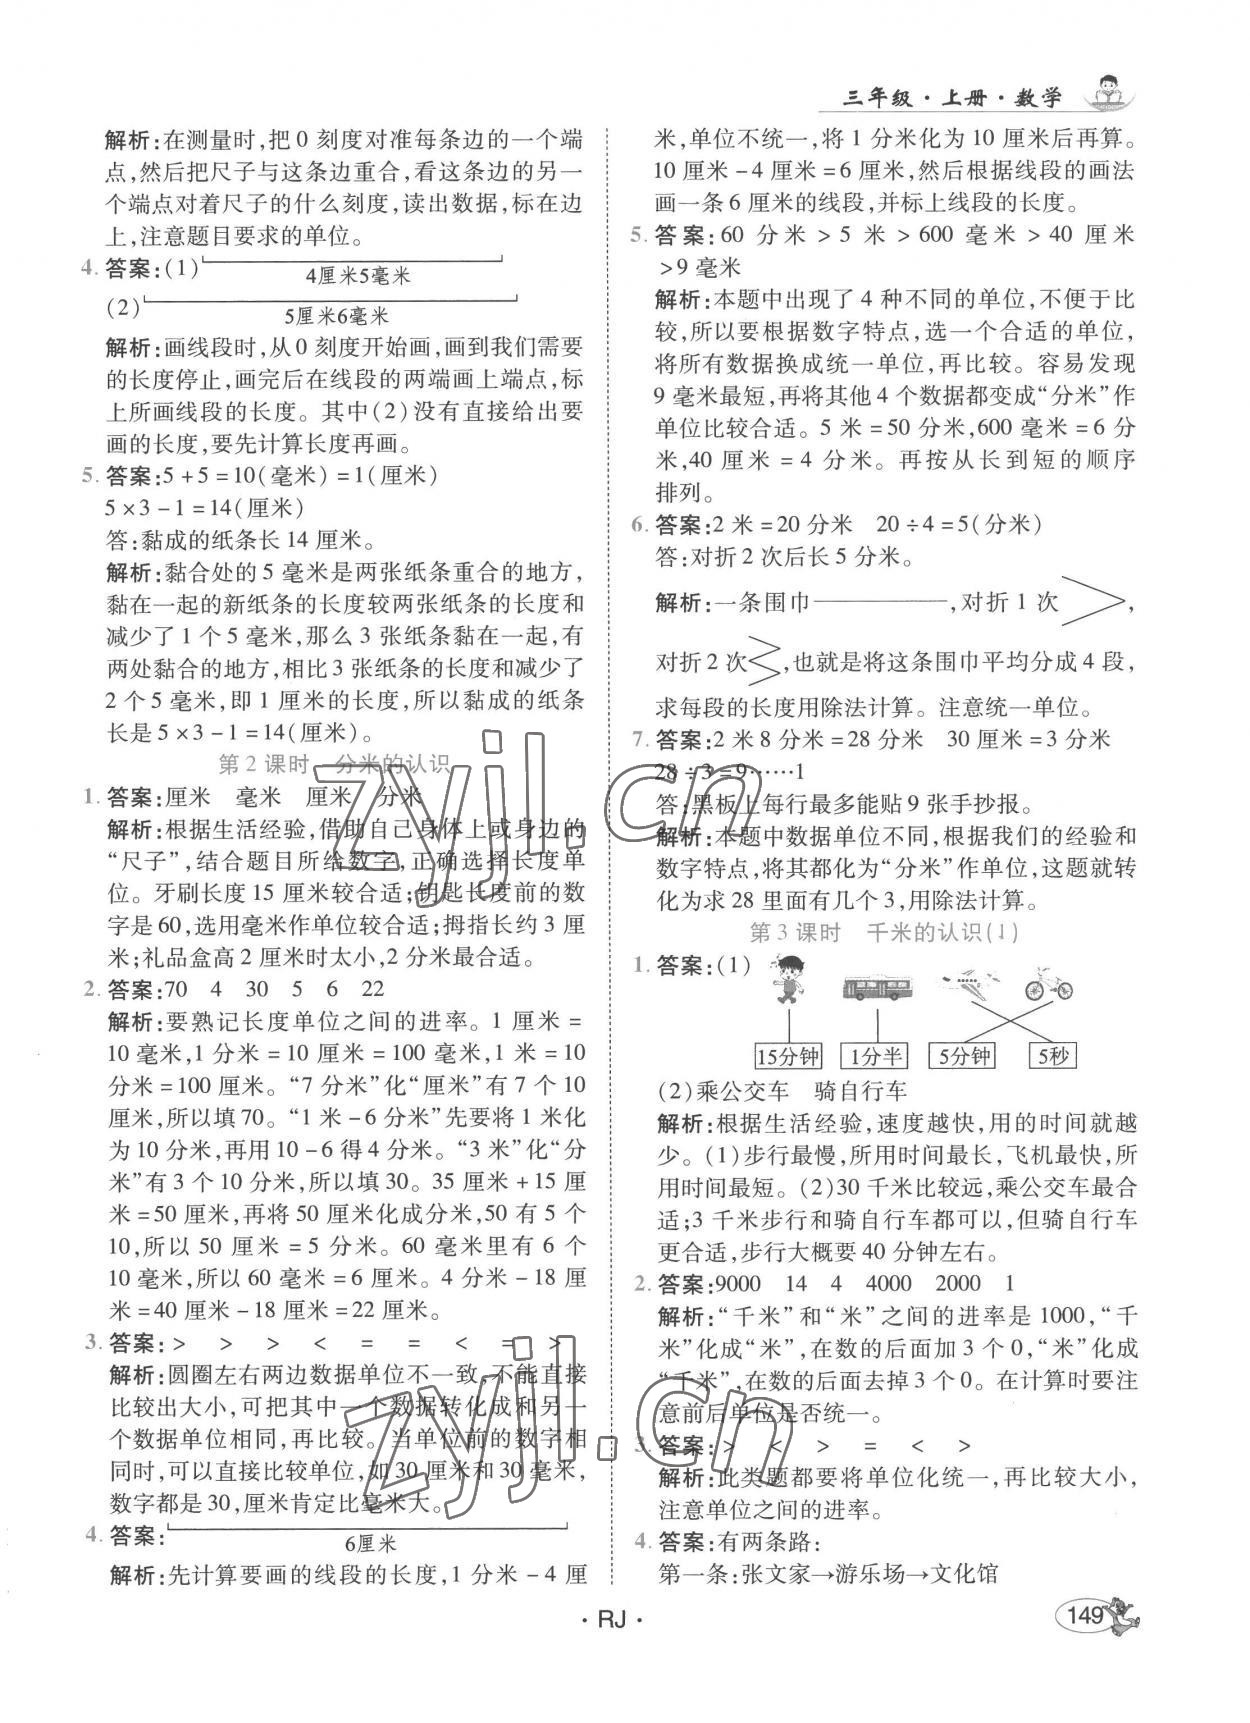 三年级·上册·数学
解析:在测量时,把0刻度对准每条边的一个端
点,然后把尺子与这条边重合,看这条边的另一
个端点对着尺子的什么刻度,读出数据,标在边
上,注意题目要求的单位。
4. 答案:(1)
4厘米5毫米
(2)
5厘米6毫米
解析:画线段时,从0刻度开始画,画到我们需要
的长度停止,画完后在线段的两端画上端点,标
上所画线段的长度。其中(2)没有直接给出要
画的长度,要先计算长度再画。
5. 答案:5+5=10(毫米)=1(厘米)
5×3-1=14(厘米)
答:黏成的纸条长14厘米。
解析:黏合处的5毫米是两张纸条重合的地方,
黏在一起的新纸条的长度较两张纸条的长度和
减少了1个5毫米,那么3张纸条黏在一起,有
两处黏合的地方,相比3张纸条的长度和减少了
2个5毫米,即1厘米的长度,所以黏成的纸条
长是5×3-1=14(厘米)。
第2课时 分米的认识
1. 答案:厘米 毫米 厘米 分米
解析:根据生活经验,借助自己身体上或身边的
“尺子”,结合题目所给数字,正确选择长度单
位。牙刷长度15厘米较合适;钥匙长度前的数
字是60,选用毫米作单位较合适;拇指长约3厘
米;礼品盒高2厘米时太小,2分米合适。
2. 答案:70 4 30 5 6 22
解析:要熟记长度单位之间的进率。1厘米=
10毫米,1分米=10厘米=100毫米,1米=10
分米=100厘米。“7分米”化“厘米”有7个10
厘米,所以填70。“1米-6分米”先要将1米化
为10分米,再用10-6得4分米。“3米”化“分
米”有3个10分米,所以填30。35厘米+15厘
米=50厘米,再将50厘米化成分米,50有5个
10,所以50厘米=5分米。60毫米里有6个
10毫米,所以60毫米=6厘米。4分米-18厘
米=40厘米-18厘米=22厘米。
3. 答案:> > > < = = < = >
解析:圆圈左右两边数据单位不一致,不能直接
比较出大小,可把其中一个数据转化成和另一
个数据单位相同,再比较。当单位前的数字相
同时,可以直接比较单位,如30厘米和30毫米,
数字都是30,厘米肯定比毫米大。
4. 答案:
6厘米
解析:先计算要画的线段的长度,1分米-4厘
米,单位不统一,将1分米化为10厘米后再算。
10厘米-4厘米=6厘米,然后根据线段的画法
画一条6厘米的线段,并标上线段的长度。
5. 答案:60分米>5米>600毫米>40厘米
>9毫米
解析:本题中出现了4种不同的单位,不便于比
较,所以要根据数字特点,选一个合适的单位,
将所有数据换成统一单位,再比较。容易发现
9毫米最短,再将其他4个数据都变成“分米”作
单位比较合适。5米=50分米,600毫米=6分
米,40厘米=4分米。再按从长到短的顺序
排列。
6. 答案:2米=20分米 20÷4=5(分米)
答:对折2次后长5分米。
解析:一条围巾,对折1次,
对折2次,也就是将这条围巾平均分成4段,
求每段的长度用除法计算。注意统一单位。
7. 答案:2米8分米=28分米 30厘米=3分米
28÷3=9……1
答:黑板上每行最多能贴9张手抄报。
解析:本题中数据单位不同,根据我们的经验和
数字特点,将其都化为“分米”作单位,这题就转
化为求28里面有几个3,用除法计算。
第3课时 千米的认识(1)
1. 答案:(1)
15分钟 1分半 5分钟 5秒
(2)乘公交车 骑自行车
解析:根据生活经验,速度越快,用的时间就越
少。(1)步行最慢,所用时间最长,飞机最快,所
用时间最短。(2)30千米比较远,乘公交车最合
适;3千米步行和骑自行车都可以,但骑自行车
更合适,步行大概要40分钟左右。
2. 答案:9000 14 4 4000 2000 1
解析:“千米”和“米”之间的进率是1000,“千
米”化成“米”,在数的后面加3个0,“米”化成
“千米”,在数的后面去掉3个0。在计算时要注
意前后单位是否统一。
3. 答案:> < > = < >
解析:此类题都要将单位化统一,再比较大小,
注意单位之间的进率。
4. 答案:有两条路:
第一条:张文家→游乐场→文化馆
·RJ·
149
zyjl.cn
zyjl.cn